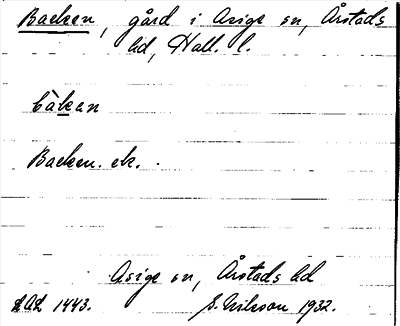 Backen, gård i Asige sn, Årstads
hd, Hall. l.
bàkan
Backen. ek.
Asige sn, Årstads hd
1443. S. Nilsson 1932.